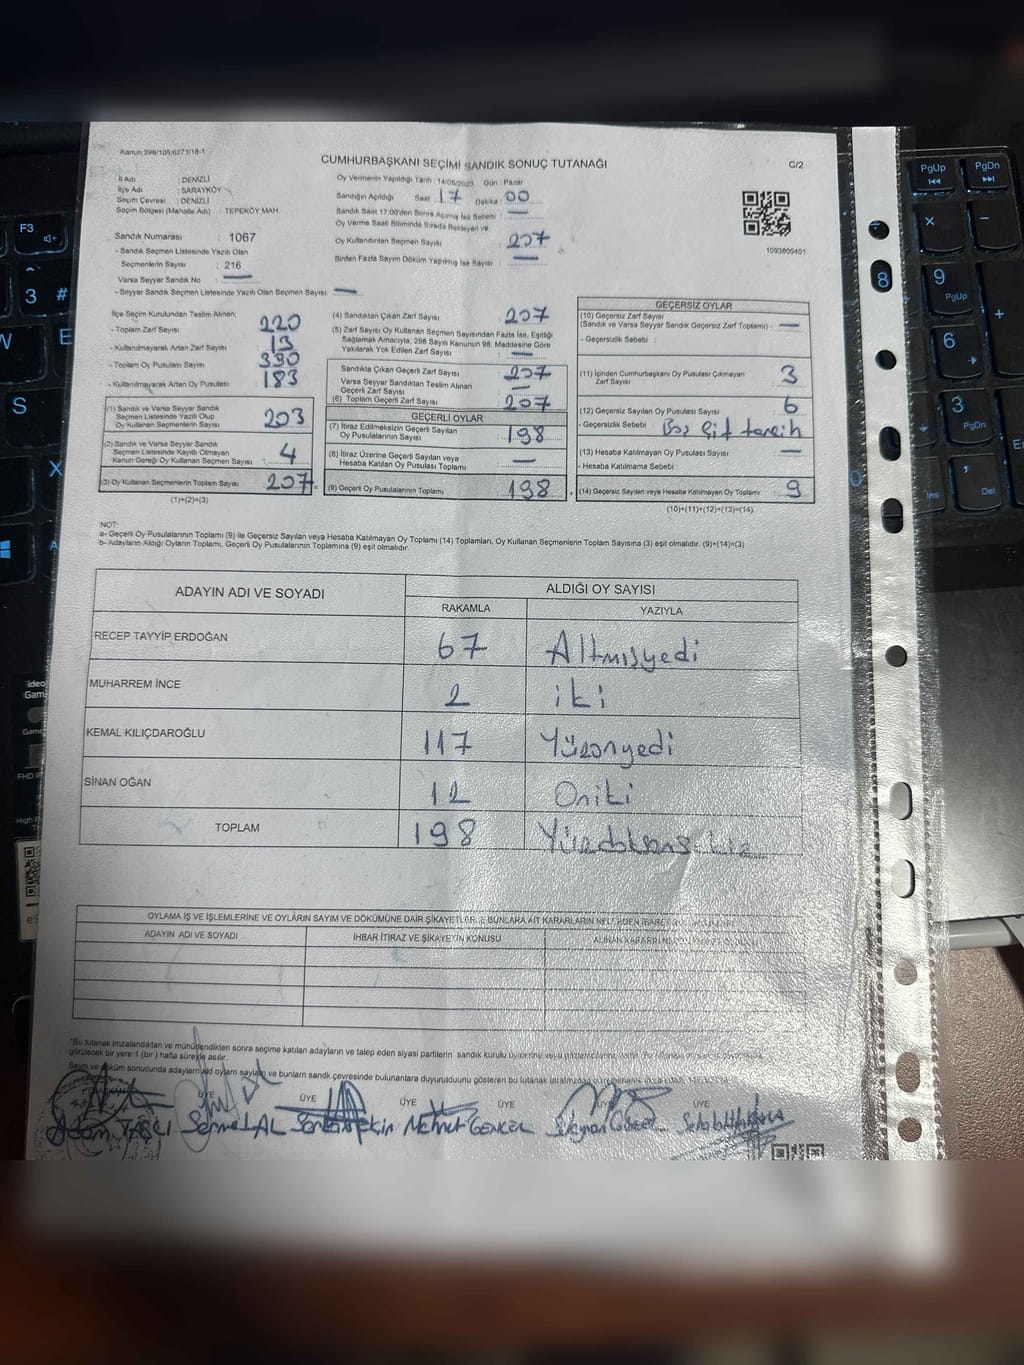 Kanun:298/105;6271/18-1
CUMHURBAŞKANI SEÇİMİ SANDIK SONUÇ TUTANAĞI
C/2
İl Adı : DENİZLİ
İlçe Adı : SARAYKÖY
Seçim Çevresi : DENİZLİ
Seçim Bölgesi (Mahalle Adı) : TEPEKÖY MAH.
Sandık Numarası : 1067
- Sandık Seçmen Listesinde Yazılı Olan
Seçmenlerin Sayısı : 216
Varsa Seyyar Sandık No —
- Seyyar Sandık Seçmen Listesinde Yazılı Olan Seçmen Sayısı —
Oy Vermenin Yapıldığı Tarih : 14/05/2023 Gün : Pazar
Sandığın Açıldığı Saat 17 Dakika : 00
Sandık Saat 17:00'den Sonra Açılmış İse Sebebi : —
Oy Verme Saati Bitiminde Sırada Bekleyen ve
Oy Kullandırılan Seçmen Sayısı : 207
Birden Fazla Sayım Döküm Yapılmış İse Sayısı : —
1093809401
İlçe Seçim Kurulundan Teslim Alınan;
- Toplam Zarf Sayısı 220
- Kullanılmayarak Artan Zarf Sayısı 13
- Toplam Oy Pusulası Sayısı 390
- Kullanılmayarak Artan Oy Pusulası 183
(1) Sandık ve Varsa Seyyar Sandık
Seçmen Listesinde Yazılı Olup
Oy Kullanan Seçmenlerin Sayısı 203
(2) Sandık ve Varsa Seyyar Sandık
Seçmen Listesinde Kayıtlı Olmayan
Kanun Gereği Oy Kullanan Seçmen Sayısı 4
(3) Oy Kullanan Seçmenlerin Toplam Sayısı 207
(1)+(2)=(3)
(4) Sandıktan Çıkan Zarf Sayısı 207
(5) Zarf Sayısı Oy Kullanan Seçmen Sayısından Fazla İse, Eşitliği
Sağlamak Amacıyla, 298 Sayılı Kanunun 98. Maddesine Göre
Yakılarak Yok Edilen Zarf Sayısı —
Sandıkta Çıkan Geçerli Zarf Sayısı 207
Varsa Seyyar Sandıktan Teslim Alınan
Geçerli Zarf Sayısı —
(6) Toplam Geçerli Zarf Sayısı 207
GEÇERLİ OYLAR
(7) İtiraz Edilmeksizin Geçerli Sayılan
Oy Pusulalarının Sayısı 198
(8) İtiraz Üzerine Geçerli Sayılan veya
Hesaba Katılan Oy Pusulası Toplamı —
(9) Geçerli Oy Pusulalarının Toplamı 198
GEÇERSİZ OYLAR
(10) Geçersiz Zarf Sayısı
(Sandık ve Varsa Seyyar Sandık Geçersiz Zarf Toplamı) : —
- Geçersizlik Sebebi :
(11) İçinden Cumhurbaşkanı Oy Pusulası Çıkmayan
Zarf Sayısı 3
(12) Geçersiz Sayılan Oy Pusulası Sayısı 6
- Geçersizlik Sebebi Boş Çift tercih
(13) Hesaba Katılmayan Oy Pusulası Sayısı —
- Hesaba Katılmama Sebebi
(14) Geçersiz Sayılan veya Hesaba Katılmayan Oy Toplamı 9
(10)+(11)+(12)+(13)=(14)
NOT:
a- Geçerli Oy Pusulalarının Toplamı (9) ile Geçersiz Sayılan veya Hesaba Katılmayan Oy Toplamı (14) Toplamları, Oy Kullanan Seçmenlerin Toplam Sayısına (3) eşit olmalıdır. (9)+(14)=(3)
b- Adayların Aldığı Oyların Toplamı, Geçerli Oy Pusulalarının Toplamına (9) eşit olmalıdır.
ADAYIN ADI VE SOYADI
ALDIĞI OY SAYISI
RAKAMLA YAZIYLA
RECEP TAYYİP ERDOĞAN 67 Altmışyedi
MUHARREM İNCE 2 iki
KEMAL KILIÇDAROĞLU 117 Yüzonyedi
SİNAN OĞAN 12 Oniki
TOPLAM 198 Yüzdoksansekiz
OYLAMA İŞ VE İŞLEMLERİNE VE OYLARIN SAYIM VE DÖKÜMÜNE DAİR ŞİKAYETLER VE BUNLARA AİT KARARLARIN
ADAYIN ADI VE SOYADI
İHBAR İTİRAZ VE ŞİKAYETİN KONUSU
*Bu tutanak imzalandıktan ve mühürlendikten sonra seçime katılan adayların ve talep eden siyasi partilerin sandık kurulu
görülecek bir yere 1 (bir) hafta süreyle asılır.
Sayım ve döküm sonucunda adayların aldığı oyların sayıları ve bunların sandık çevresinde bulunanlara duyurulduğunu gösteren bu tutanak
ÜYE ÜYE ÜYE ÜYE ÜYE
Mehmet GENCEL
F3
PgUp
PgDn
9
PgUp
8
6
3
PgDn
3 #
W E
S
X
A
Ins
Del